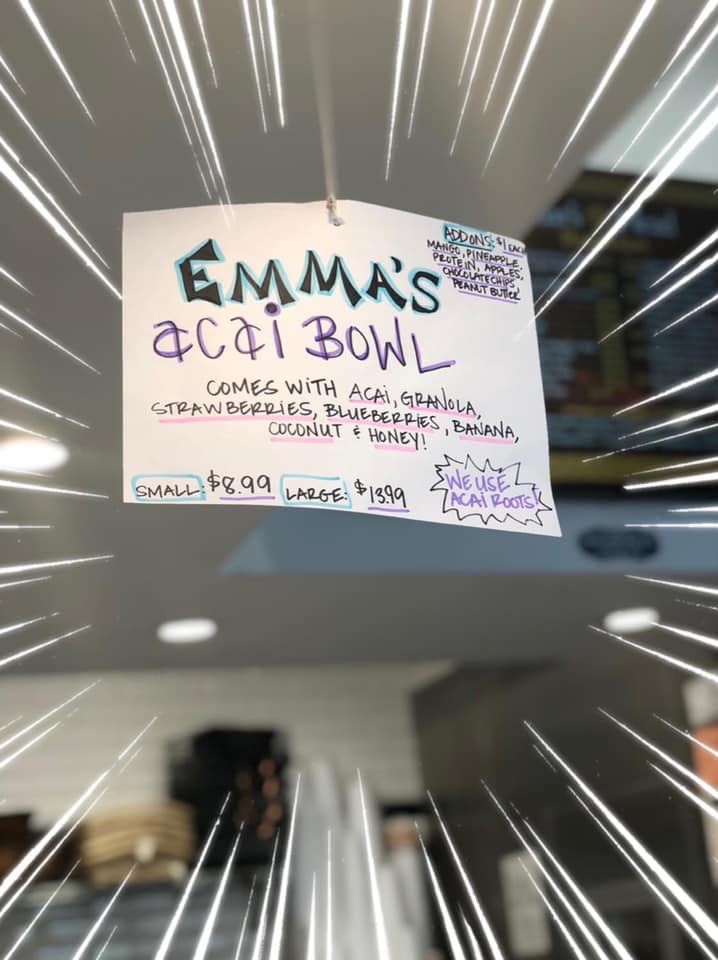 EMMA'S
ACAI BOWL
COMES WITH ACAI, GRANOLA,
STRAWBERRIES, BLUEBERRIES, BANANA,
COCONUT & HONEY!
SMALL: $8.99 LARGE: $13.99
WE USE
ACAI ROOTS!
ADD ONS: $1 EACH
MANGO, PINEAPPLE,
PROTEIN, APPLES,
CHOCOLATE CHIPS,
PEANUT BUTTER